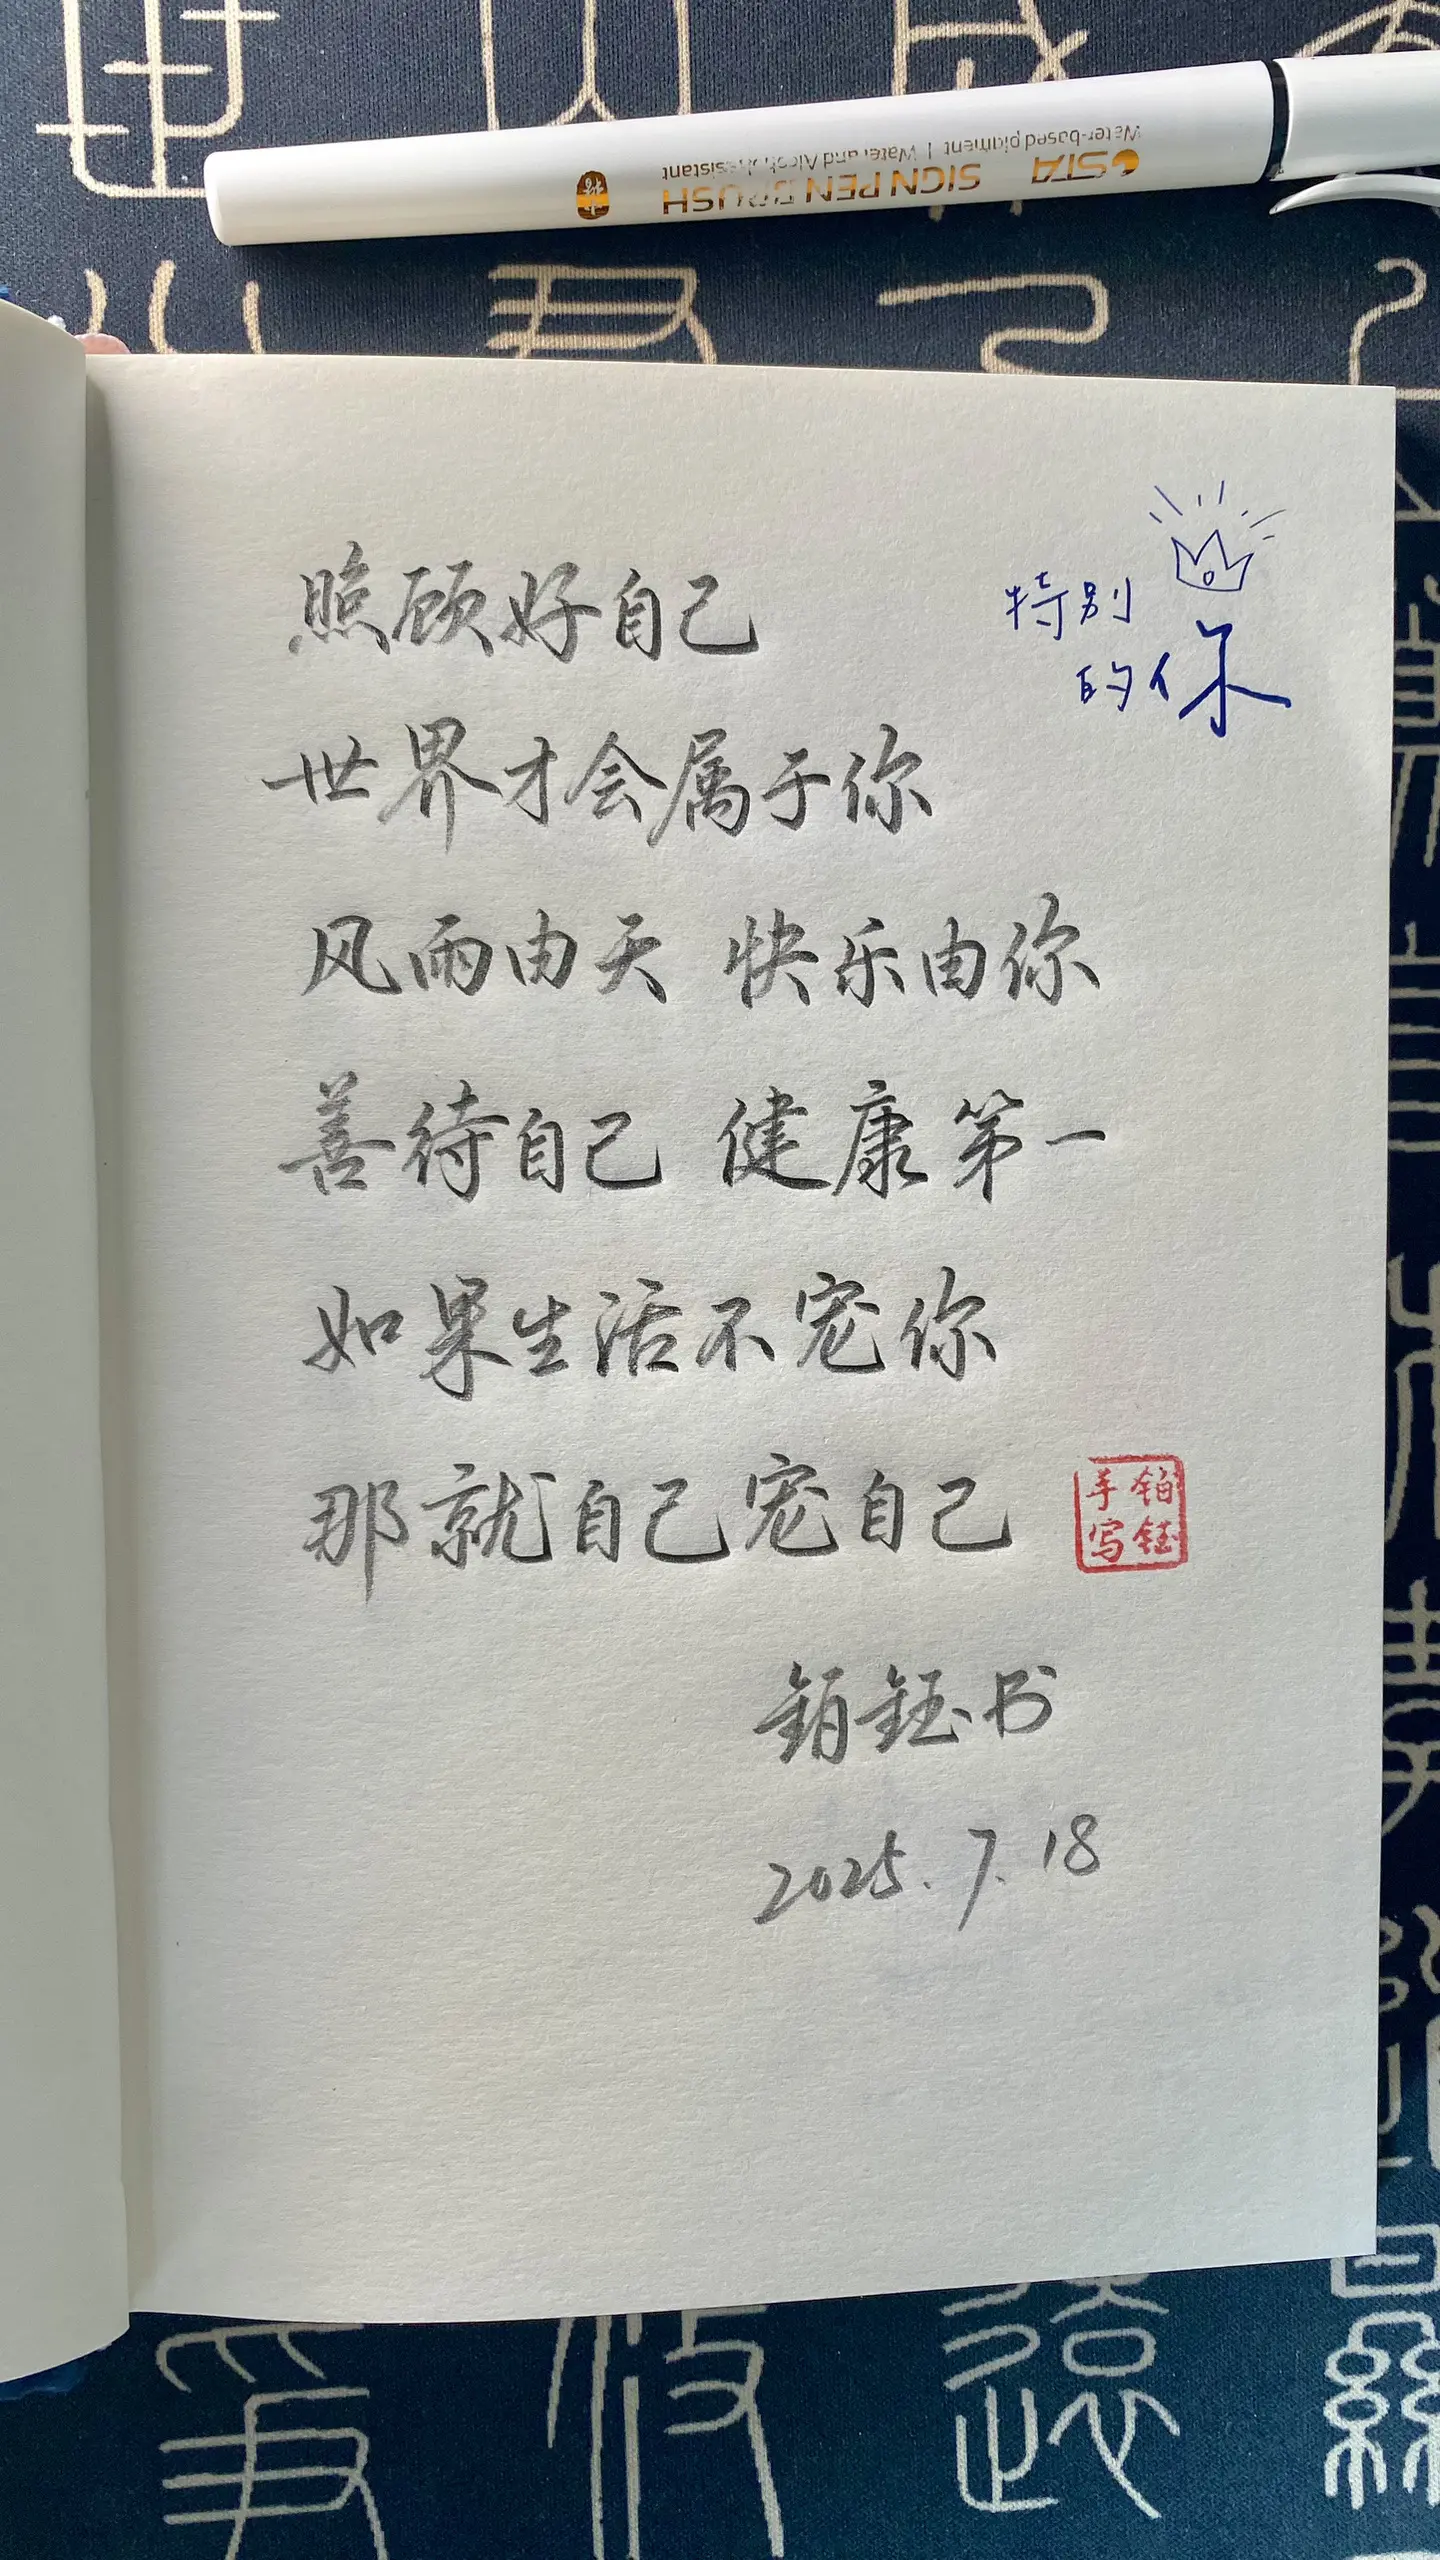 STA SIGN PEN BRUSH
Water-based pigment | Water and Alcohol resistant
特别
的你
照顾好自己
世界才会属于你
风雨由天 快乐由你
善待自己 健康第一
如果生活不宠你
那就自己宠自己
铂钰
手写
铂钰书
2025.7.18